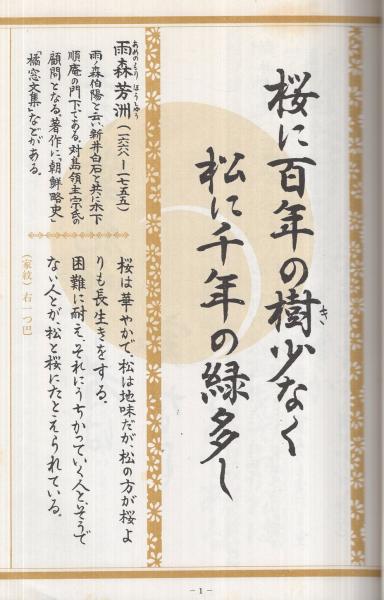 桜に百年の樹少なく
き
松に千年の緑多し
桜は華やかで、松は地味だが、松の方が桜よ
りも長生きをする。
困難に耐え、それにうちかっていく人と、そうで
ない人とが、松と桜にたとえられている。
あめのもり ほうしゅう
雨森芳洲（一六六八ー一七五五）
雨ノ森伯陽と云い、新井白石と共に木下
順庵の門下である。対島領主宗氏の
顧問となる。著作に、朝鮮略史
「橘窓文集」などがある。
（家紋）右一つ巴
－1－